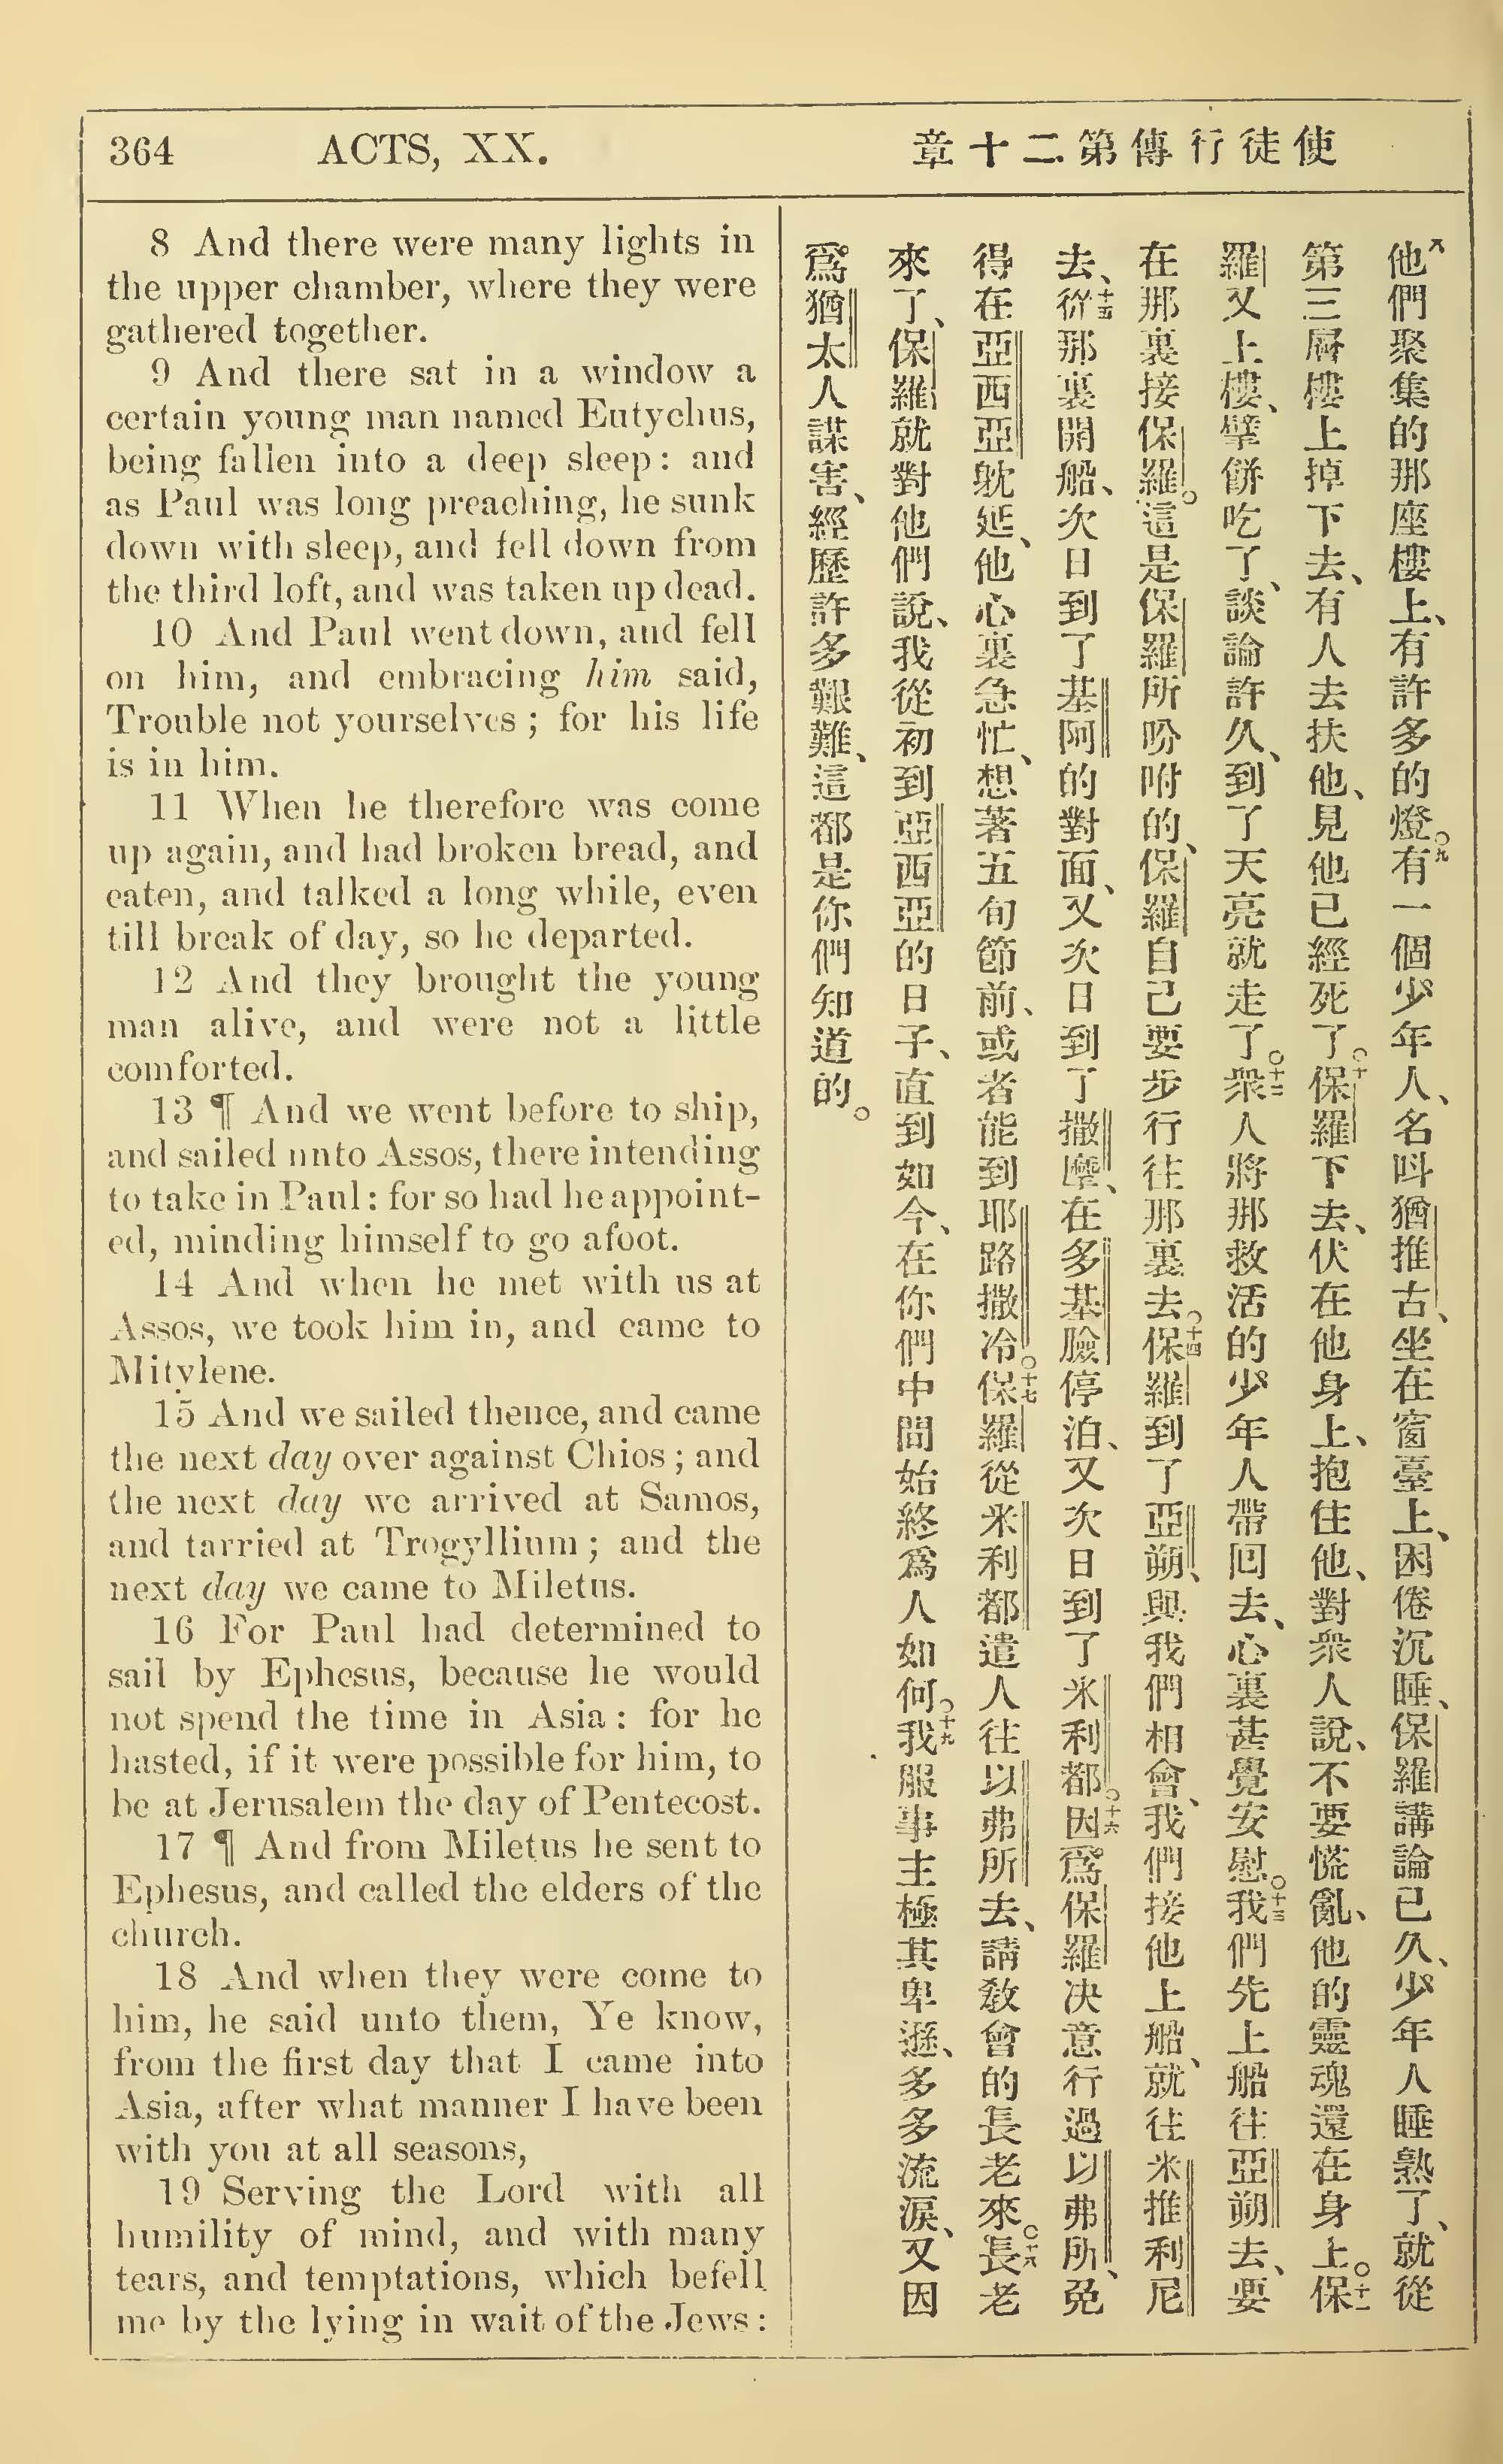 364
ACTS, XX.
使徒行傳第二十章
8 And there were many lights in
the upper chamber, where they were
gathered together.
9 And there sat in a window a
certain young man named Eutychus,
being fallen into a deep sleep: and
as Paul was long preaching, he sunk
down with sleep, and fell down from
the third loft, and was taken up dead.
10 And Paul went down, and fell
on him, and embracing him said,
Trouble not yourselves; for his life
is in him.
11 When he therefore was come
up again, and had broken bread, and
eaten, and talked a long while, even
till break of day, so he departed.
12 And they brought the young
man alive, and were not a little
comforted.
13 ¶ And we went before to ship,
and sailed unto Assos, there intending
to take in Paul: for so had he appoint-
ed, minding himself to go afoot.
14 And when he met with us at
Assos, we took him in, and came to
Mitylene.
15 And we sailed thence, and came
the next day over against Chios; and
the next day we arrived at Samos,
and tarried at Trogyllium; and the
next day we came to Miletus.
16 For Paul had determined to
sail by Ephesus, because he would
not spend the time in Asia: for he
hasted, if it were possible for him, to
be at Jerusalem the day of Pentecost.
17 ¶ And from Miletus he sent to
Ephesus, and called the elders of the
church.
18 And when they were come to
him, he said unto them, Ye know,
from the first day that I came into
Asia, after what manner I have been
with you at all seasons,
19 Serving the Lord with all
humility of mind, and with many
tears, and temptations, which befell
me by the lying in wait of the Jews:
八他們聚集的那座樓上、有許多的燈。九有一個少年人、名呌猶推古、坐在窗臺上、困倦沉睡、保羅講論已久、少年人睡熟了、就從
第三層樓上掉下去、有人去扶他、見他已經死了。十保羅下去、伏在他身上、抱住他、對衆人說、不要慌亂、他的靈魂還在身上。十一保
羅又上樓、擘餅吃了、談論許久、到了天亮就走了。十二衆人將那救活的少年人帶回去、心裏甚覺安慰。十三我們先上船往亞朔去、要
在那裏接保羅。這是保羅所吩咐的、保羅自己要步行往那裏去。十四保羅到了亞朔、與我們相會、我們接他上船、就往米推利尼
去、十五從那裏開船、次日到了基阿的對面、又次日到了撒摩、在多基臉停泊、又次日到了米利都。十六因爲保羅决意行過以弗所、免
得在亞西亞躭延、他心裏急忙、想著五旬節前、或者能到耶路撒冷。十七保羅從米利都遣人往以弗所去、請敎會的長老來。十八長老
來了、保羅就對他們說、我從初到亞西亞的日子、直到如今、在你們中間始終爲人如何。十九我服事主極其卑遜、多多流淚、又因
爲猶太人謀害、經歷許多艱難、這都是你們知道的。